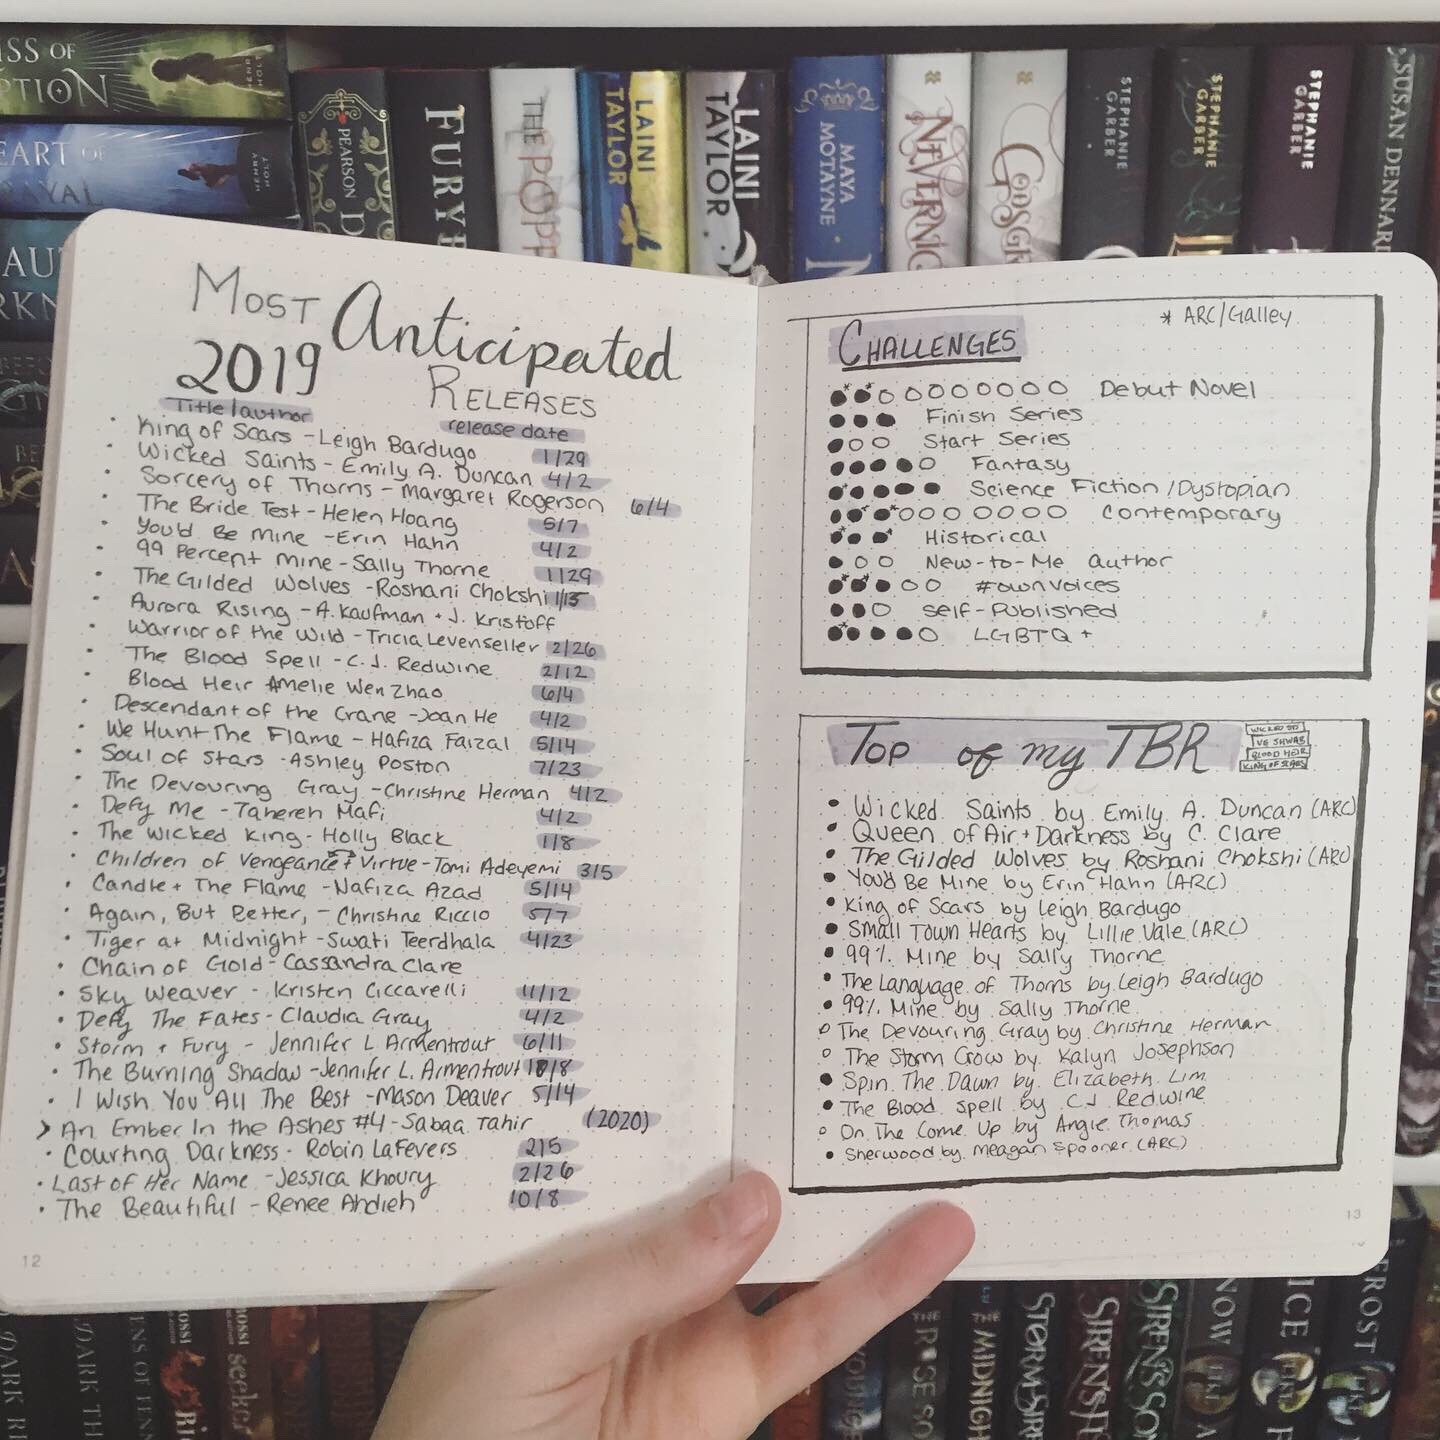 ISS OF
PTION
HEART OF
PEARSON
FURY
THE
LAINI
TAYLOR
LAINI
TAYLOR
MAYA
MOTAYNE
NEVERNIG
GODSGR
STEPHANIE
GARBER
STEPHANIE
GARBER
STEPHANIE
GARBER
SUSAN DENNARD
MOST Anticipated
2019 RELEASES
Title/author release date
• King of Scars - Leigh Bardugo 1/29
• Wicked Saints - Emily A. Duncan 4/2
• Sorcery of Thorns - Margaret Rogerson 6/4
• The Bride Test - Helen Hoang 5/7
• You'd Be Mine - Erin Hahn 4/2
• 99 Percent Mine - Sally Thorne 1/29
• The Gilded Wolves - Roshani Chokshi 1/15
• Aurora Rising - A. Kaufman + J. Kristoff
• Warrior of the Wild - Tricia Levenseller 2/26
• The Blood Spell - C.J. Redwine 2/12
• Blood Heir Amelie Wen Zhao 6/4
• Descendant of the Crane - Joan He 4/2
• We Hunt The Flame - Hafiza Faizal 5/14
• Soul of Stars - Ashley Poston 7/23
• The Devouring Gray - Christine Herman 4/2
• Defy Me - Tahereh Mafi 4/2
• The Wicked King - Holly Black 1/8
• Children of Vengeance + Virtue - Tomi Adeyemi 3/5
• Candle + The Flame - Nafiza Azad 5/14
• Again, But Better, - Christine Riccio 5/7
• Tiger at Midnight - Swati Teerdhala 4/23
• Chain of Gold - Cassandra Clare
• Sky Weaver - Kristen Ciccarelli 11/12
• Defy The Fates - Claudia Gray 4/2
• Storm + Fury - Jennifer L Armentrout 6/11
• The Burning Shadow - Jennifer L. Armentrout 10/8
• I Wish You All The Best - Mason Deaver 5/14
> An Ember In the Ashes #4 - Sabaa Tahir (2020)
• Courting Darkness - Robin LaFevers 2/5
• Last of Her Name - Jessica Khoury 2/26
• The Beautiful - Renee Ahdieh 10/8
12
* ARC/Galley
CHALLENGES
Debut Novel
Finish Series
Start Series
Fantasy
Science Fiction/Dystopian
Contemporary
Historical
New-to-Me author
#ownvoices
Self-Published
LGBTQ+
Top of my TBR
VE SHWAB
BLOOD HEIR
KING OF SCARS
• Wicked Saints by Emily A. Duncan (ARC)
• Queen of Air + Darkness by C. Clare
• The Gilded Wolves by Roshani Chokshi (ARC)
• You'd Be Mine by Erin Hahn (ARC)
• King of Scars by Leigh Bardugo
• Small Town Hearts by Lillie Vale (ARC)
• 99% Mine by Sally Thorne
• The Language of Thorns by Leigh Bardugo
• 99% Mine by Sally Thorne
○ The Devouring Gray by Christine Herman
○ The Storm Crow by Kalyn Josephson
• Spin The Dawn by Elizabeth Lim
• The Blood Spell by CJ Redwine
○ On The Come Up by Angie Thomas
• Sherwood by Meagan Spooner (ARC)
13
DARK RE
DARK TH
seeker
THE
THE
MIDNIGH
SIREN'S
SIREN'S
FROST